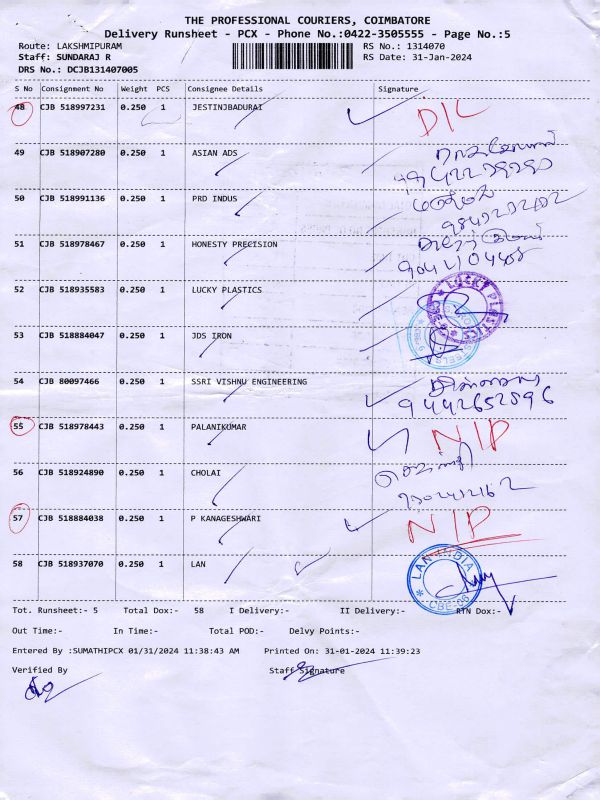 THE PROFESSIONAL COURIERS, COIMBATORE
Delivery Runsheet - PCX - Phone No.:0422-3505555 - Page No.:5
Route: LAKSHMIPURAM RS No.: 1314070
Staff: SUNDARAJ R RS Date: 31-Jan-2024
DRS No.: DCJB131407005
S No Consignment No Weight PCS Consignee Details Signature
48 CJB 518997231 0.250 1 JESTINJBADURAI D/L
49 CJB 518907280 0.250 1 ASIAN ADS
50 CJB 518991136 0.250 1 PRD INDUS
51 CJB 518978467 0.250 1 HONESTY PRECISION
52 CJB 518935583 0.250 1 LUCKY PLASTICS LUCKY PLASTICS
53 CJB 518884047 0.250 1 JDS IRON
54 CJB 80097466 0.250 1 SSRI VISHNU ENGINEERING
9442652596
55 CJB 518978443 0.250 1 PALANIKUMAR N/P
56 CJB 518924890 0.250 1 CHOLAI
57 CJB 518884038 0.250 1 P KANAGESHWARI N/P
58 CJB 518937070 0.250 1 LAN LAN INDIA CBE-06
Tot. Runsheet:- 5 Total Dox:- 58 I Delivery:- II Delivery:- RTN Dox:-
Out Time:- In Time:- Total POD:- Delvy Points:-
Entered By :SUMATHIPCX 01/31/2024 11:38:43 AM Printed On: 31-01-2024 11:39:23
Verified By Staff Signature